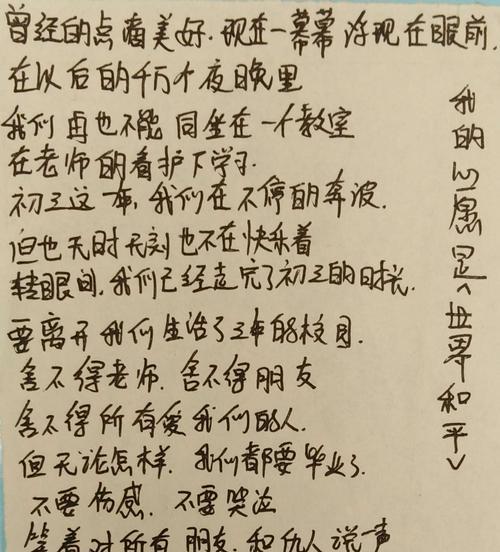 曾经的点滴美好.现在一幕幕浮现在眼前.
在以后的千万个夜晚里
我们再也不能同坐在一个教室
在老师的看护下学习.
初三这一年,我们在不停的奔波.
但也无时无刻也不在快乐着
转眼间.我们已经走完了初三的时光.
要离开我们生活了三年的校园.
舍不得老师.舍不得朋友
舍不得所有爱我们的人.
但无论怎样.我们都要毕业了.
不要伤感.不要哭泣
笑着对所有朋友.和仇人说一声
我的心愿是<世界和平>